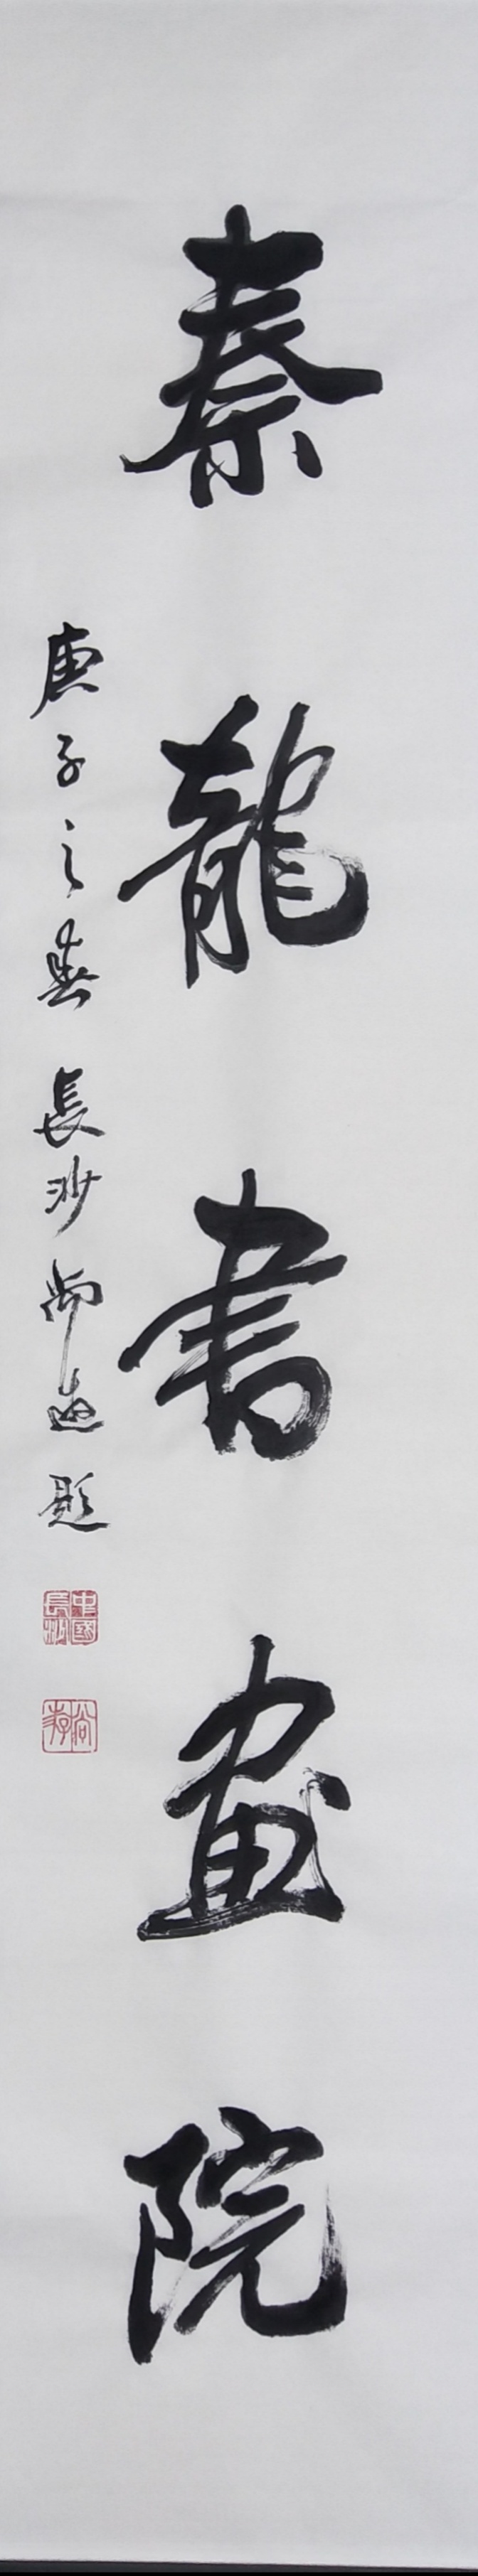 秦龍書畫院
庚子之春 長沙尚遊題
中國長沙
尚遊